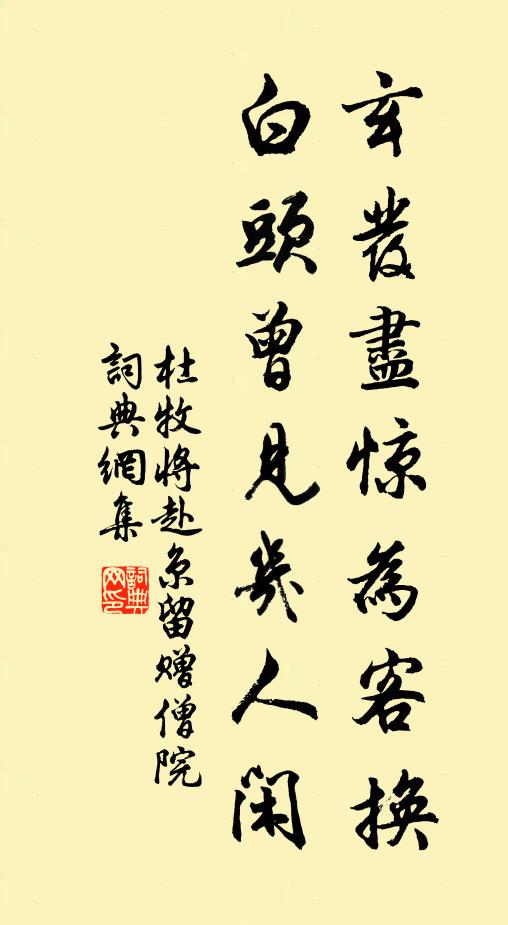 玄發盡惊為客換
白頭曾見幾人閑
杜牧將赴京留赠僧院
詞典網集
詞典網印